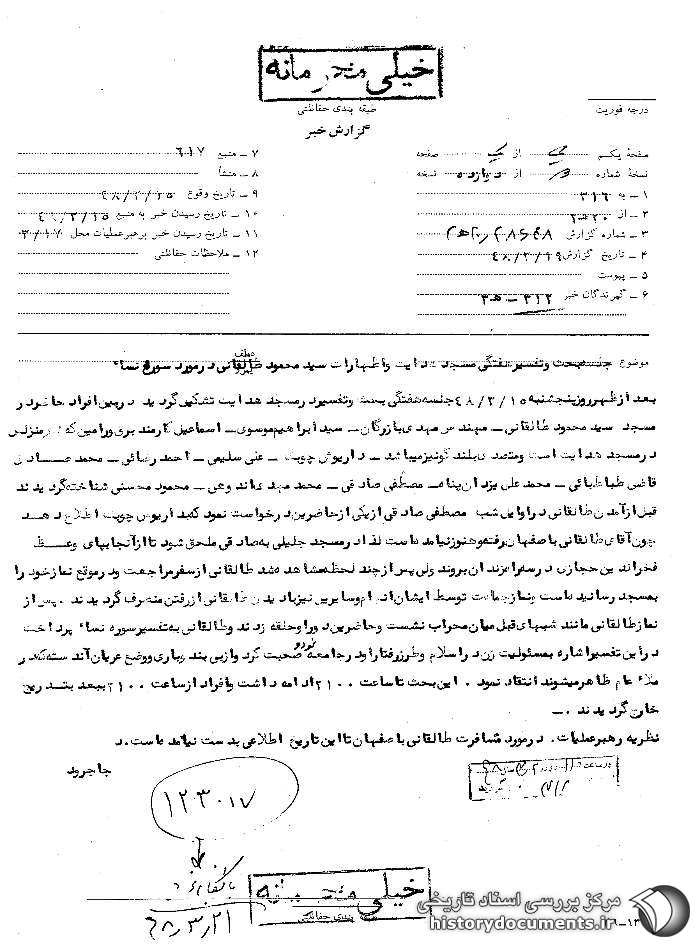 خیلی محرمانه
طبقه بندی حفاظتی
درجه فوریت
گزارش خبر
صفحهٔ یکم از یک صفحه
نسخهٔ شماره از دوازده نسخه
۱ ـ به ۳۱۶
۲ ـ از ۲۰ه۳
۳ ـ شماره گزارش
۴ ـ تاریخ گزارش ۴۸/۳/۱۹
۵ ـ پیوست
۶ ـ گیرندگان خبر ۳۱۲ ـ ه۳
۷ ـ منبع ۶۱۷
۸ ـ منشأ
۹ ـ تاریخ وقوع ۴۸/۳/۱۵
۱۰ ـ تاریخ رسیدن خبر به منبع ۴۸/۳/۱۵
۱۱ ـ تاریخ رسیدن خبر برهبر عملیات محل ۳/۱۷
۱۲ ـ ملاحظات حفاظتی
موضوع جلسه بحث و تفسیر هفتگی مسجد هدایت و اظهارات سید محمود طالقانی در مورد سوره نساء
بعد از ظهر روز پنجشنبه ۴۸/۳/۱۵ جلسه هفتگی بحث و تفسیر در مسجد هدایت تشکیل گردید در بین افراد حاضر در
مسجد سید محمود طالقانی ـ مهندس مهدی بازرگان ـ سید ابراهیم موسوی ـ اسماعیل کارمند برق ورامین که منزلش
در مسجد هدایت است و متصدی بلندگو نیز میباشد ـ داریوش چوبک ـ علی سلیمی ـ احمد رضائی ـ محمد صادق
قاضی طباطبائی ـ محمد علی یزدان پناه ـ مصطفی صادقی ـ محمد مهدی ـ محمود محسنی شناخته گردیدند
قبل از آمدن طالقانی در اوایل شب مصطفی صادقی از یکی از حاضرین درخواست نمود که بداریوش چوبک اطلاع دهد
چون آقای طالقانی باصفهان رفته و هنوز نیامده است لذا در مسجد جلیلی به صادقی ملحق شود تا از آنجا بپای وعظ
فخرالدین حجازی در سه راه ژاندارم بروند ولی پس از چند لحظه مشاهده شد طالقانی از سفر مراجعت و در موقع نماز خود را
بمسجد رسانیده است و نماز جماعت توسط ایشان انجام و سایرین نیز با دیدن طالقانی از رفتن منصرف گردیدند . پس از
نماز طالقانی مانند شبهای قبل میان محراب نشست و حاضرین دور او حلقه زدند و طالقانی به تفسیر سوره نساء پرداخت
در این تفسیر اشاره بمسئولیت زن در اسلام و طرز رفتار او در جامعه نمود و صحبت کرد و از بی بند و باری و وضع عریان آندسته که در
ملاء عام ظاهر میشوند انتقاد نمود . این بحث تا ساعت ۲۱۰۰ ادامه داشت و افراد از ساعت ۲۱۰۰ ببعد بتدریج
خارج گردیدند .ـ
نظریه رهبر عملیات . در مورد مسافرت طالقانی باصفهان تا این تاریخ اطلاعی بدست نیامده است . د
جاجرود
۱۲۳۰۱۷
بایگانی شود
۴۸/۳/۲۱
خیلی محرمانه
طبقه بندی حفاظتی
مرکز بررسی اسناد تاریخی
historydocuments.ir